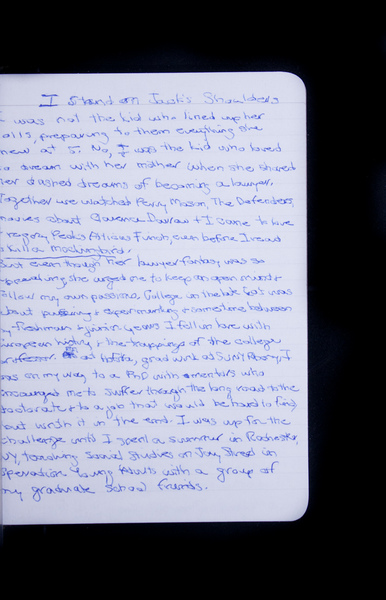 I Stand on Jack's Shoulders
I was not the kid who lined up her
alls, preparing to them everything she
new at 5. No, I was the kid who loved
to dream with her mother when she shared
her dashed dreams of becoming a lawyer.
Together we watched Perry Mason, The Defenders,
movies about Clarence Darrow + I came to love
regory Peck's Atticus Finch, even before I read
o Kill a Mockingbird.
But even though her lawyer fantasy was so
appealing, she urged me to keep an open mind +
ollow my own passions. College in the late 60s was
about and experimenting + sometime between
y freshman + junior years I fell in love with
uropean history + the trappings of the college
professor. at Hofstra, grad work at SUNY Albany, I
was on my way to a PhD with mentors who
encouraged me to suffer through the long road to the
doctorate + to a job that would be hard to find,
but worth it in the end. I was up for the
challenge until I spent a summer in Rochester,
NY, teaching social studies on Jay Street in
Operation Young Adults with a group of
my graduate school friends.